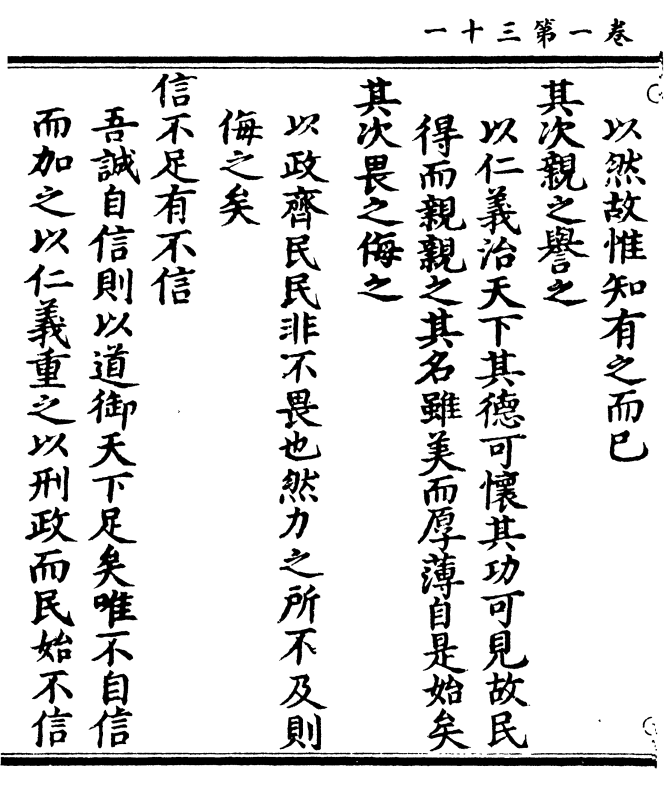 卷一第三十一
以然故惟知有之而已
其次親之譽之
以仁義治天下其德可懷其功可見故民
得而親親之其名雖美而厚薄自是始矣
其次畏之侮之
以政齊民民非不畏也然力之所不及則
侮之矣
信不足有不信
吾誠自信則以道御天下足矣唯不自信
而加之以仁義重之以刑政而民始不信